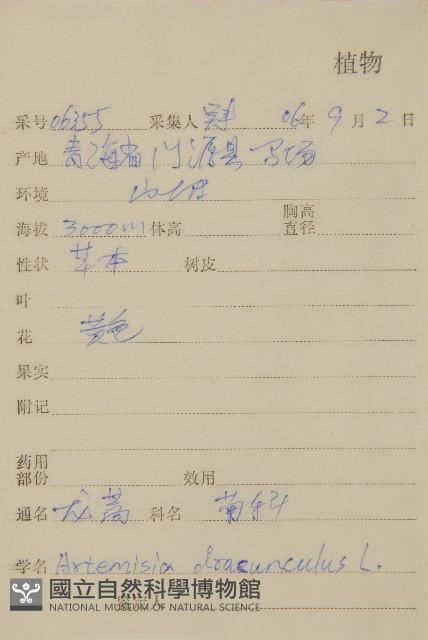 植物
采号 06355 采集人 06年 9月 2日
产地 青海省门源县马场
环境 山坡
海拔 3000m 体高 胸高直径
性状 草本 树皮
叶
花 黄色
果实
附记
药用部份 效用
通名 龙蒿 科名 菊科
学名 Artemisia dracunculus L.
國立自然科學博物館
NATIONAL MUSEUM OF NATURAL SCIENCE